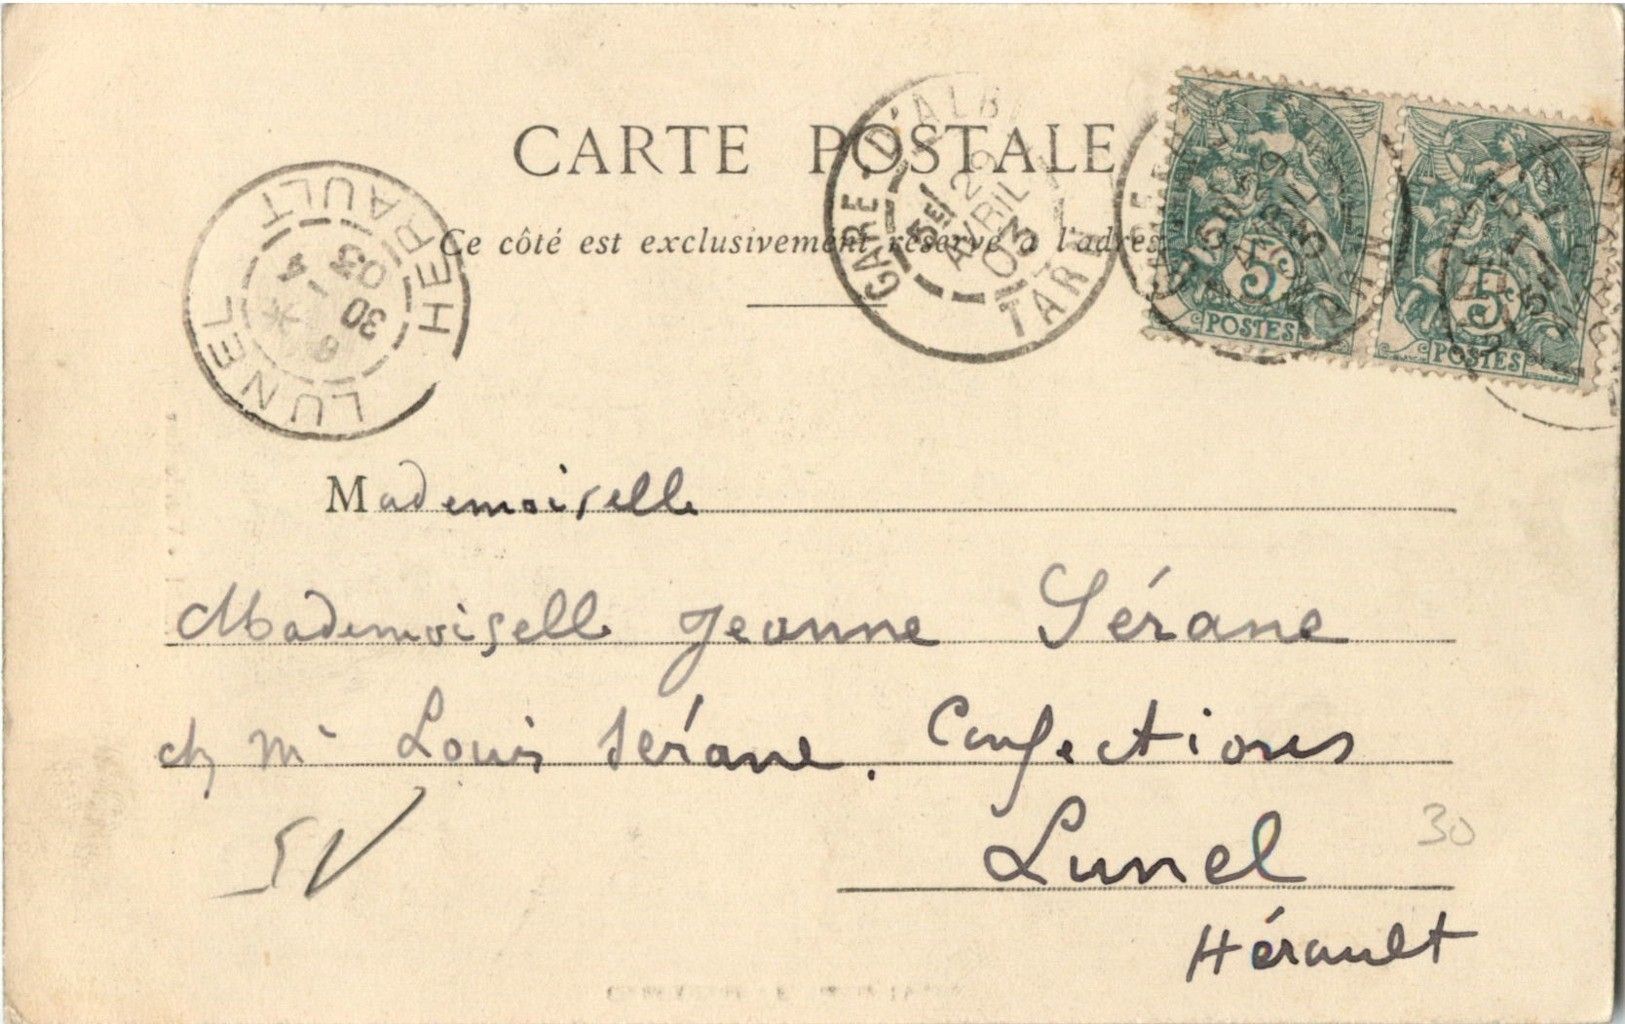 CARTE POSTALE
Ce côté est exclusivement réservé à l'adres
GARE D'ALBI
5E/
29
AVRIL
03
TARN
5c
POSTES
5c
POSTES
LUNEL
HERAULT
8
30
4
03
Mademoiselle
Mademoiselle Jeanne Sérane
ch Mr Louis Sérane. Confections
Lunel
Hérault
30